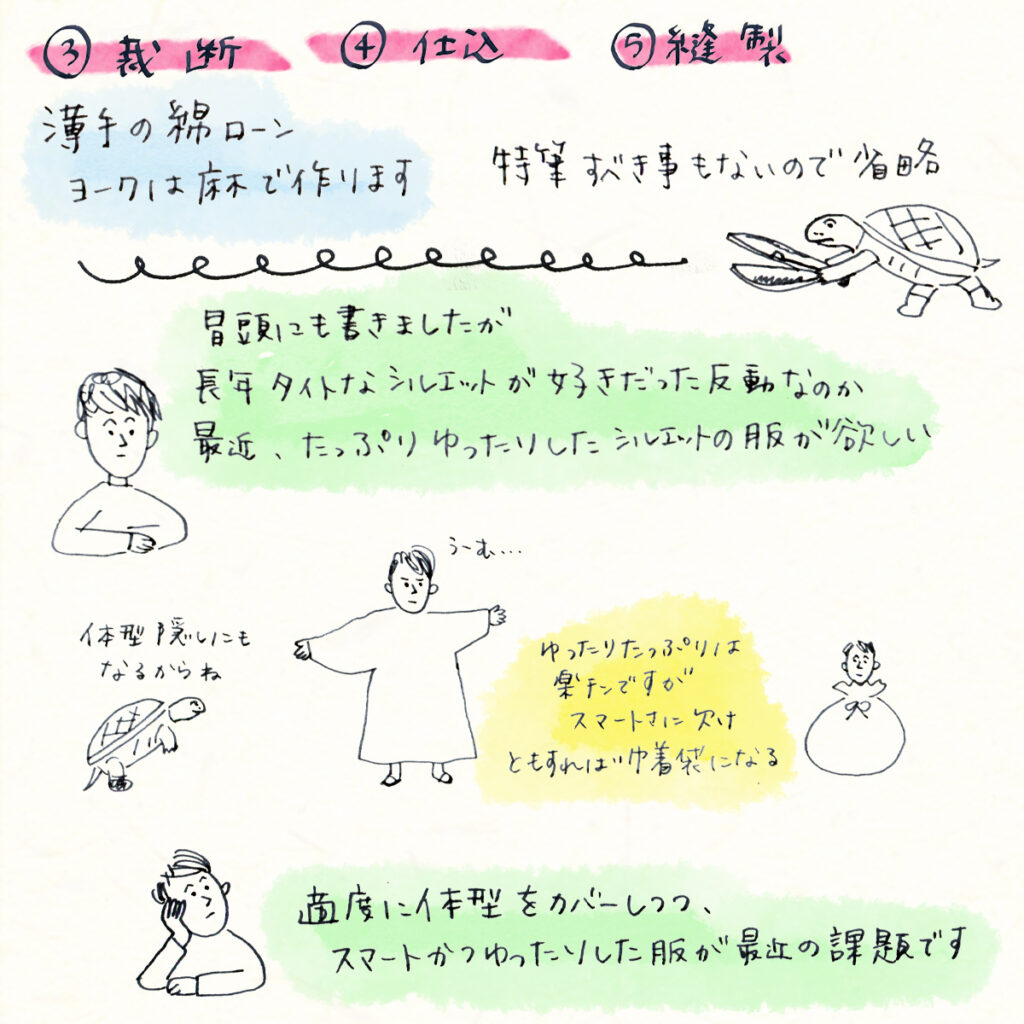 ③ 裁断 ④ 仕込 ⑤ 縫製
薄手の綿ローン
ヨークは麻で作ります
特筆すべき事もないので省略
冒頭にも書きましたが
長年タイトなシルエットが好きだった反動なのか
最近、たっぷりゆったりしたシルエットの服が欲しい
うーむ…
体型隠しにも
なるからね
ゆったりたっぷりは
楽チンですが
スマートさに欠け
ともすれば巾着袋になる
適度に体型をカバーしつつ、
スマートかつゆったりした服が最近の課題です